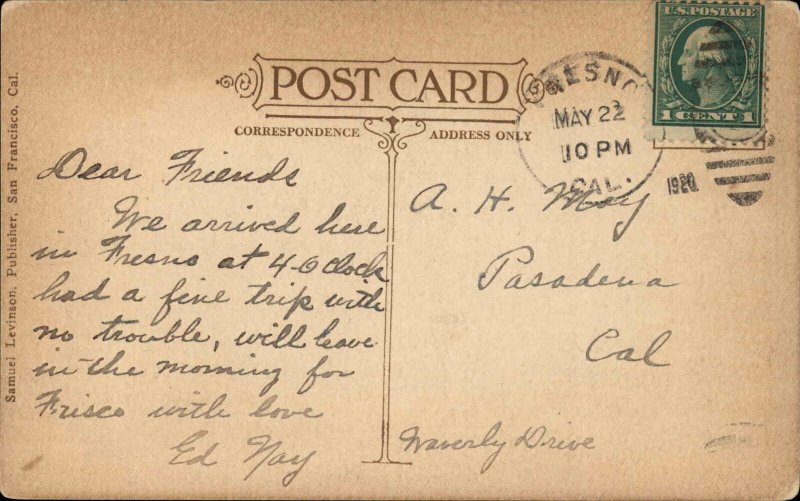 Samuel Levinson, Publisher, San Francisco, Cal.
POST CARD
CORRESPONDENCE
ADDRESS ONLY
U.S. POSTAGE
1 CENT 1
FRESNO
MAY 22
10 PM
CAL.
1920
Dear Friends
We arrived here
in Fresno at 4 O clock
had a fine trip with
no trouble, will leave
in the morning for
Frisco with love
Ed Nay
A. H. May
Pasadena
Cal
Waverly Drive